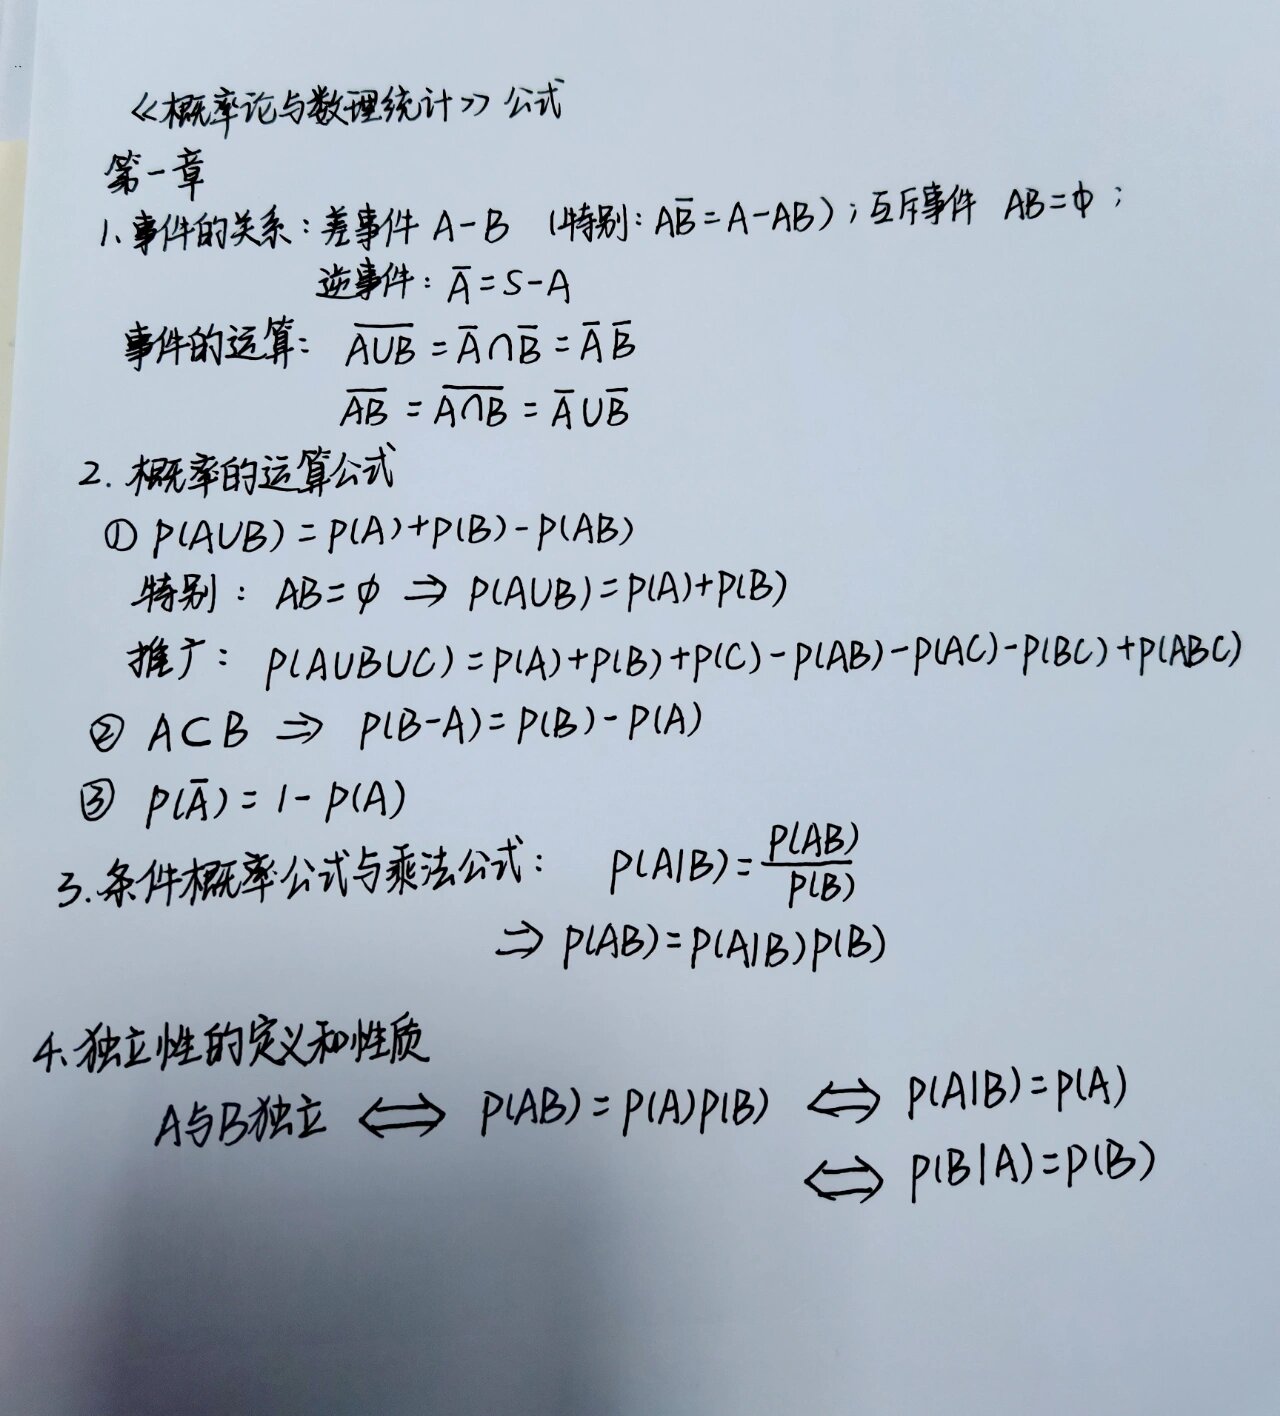 《概率论与数理统计》公式
第一章
1、事件的关系：差事件 A-B （特别：AB̅=A-AB）；互斥事件 AB=Φ；
逆事件：A̅=S-A
事件的运算： \overline{A∪B} = A̅∩B̅ = A̅ B̅
\overline{AB} = \overline{A∩B} = A̅∪B̅
2. 概率的运算公式
① P(A∪B)=P(A)+P(B)-P(AB)
特别： AB=φ ⇒ P(A∪B)=P(A)+P(B)
推广： P(A∪B∪C)=P(A)+P(B)+P(C)-P(AB)-P(AC)-P(BC)+P(ABC)
② A⊂B ⇒ P(B-A)=P(B)-P(A)
③ P(A̅)=1-P(A)
3.条件概率公式与乘法公式： P(A|B)=\frac{P(AB)}{P(B)}
⇒ P(AB)=P(A|B)P(B)
4、独立性的定义和性质
A与B独立 ⇔ P(AB)=P(A)P(B) ⇔ P(A|B)=P(A)
⇔ P(B|A)=P(B)